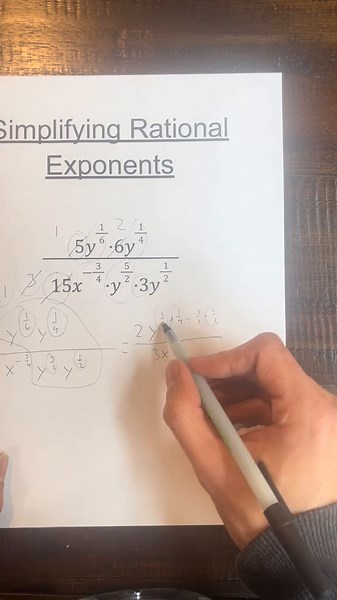 Simplifying Rational
Exponents
1 2
5y^{1/6}·6y^{1/4}
1 3
15x^{-3/4}·y^{5/2}·3y^{1/2}
y^{1/6} y^{1/4}
x^{-3/4} y^{5/2} y^{1/2}
=
2 y
3x